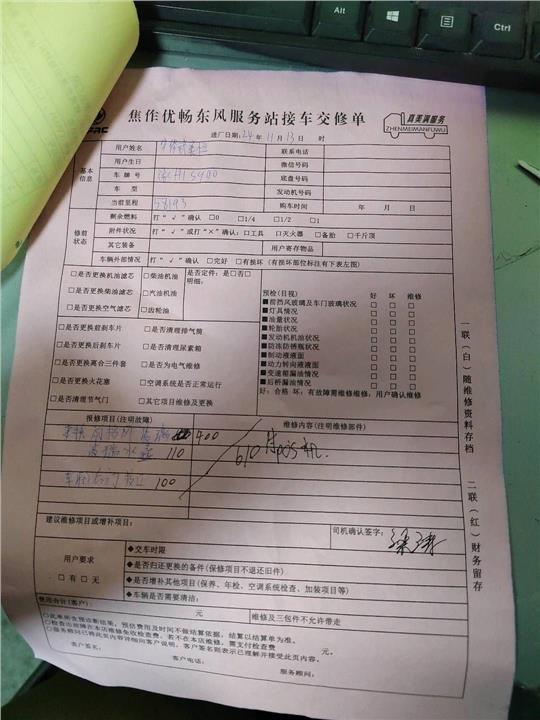 Alt
Ctrl
焦作优畅东风服务站接车交修单
真美满服务
ZHENMEIMANFUWU
送厂日期：24 年 11 月 13 日 时
基本信息
用户姓名
联系电话
用户生日
微信号码
车牌号
底盘号码
车 型
发动机号码
当前里程 58193
购车时间 年 月 日
修前状态
剩余燃料 打“√”确认 □0 □1/4 □1/2 □1
附件状况 打“√”或打“×”确认：□工具 □灭火器 □备胎 □千斤顶
其它装备 用户寄存物品
车辆外部情况 打“√”确认 □完好 □有损坏（有损坏部位标注有下表左图）
□是否更换机油滤芯 □柴油机油 是否定件：是□否□
明细：
□是否更换柴油滤芯 □汽油机油
□是否更换空气滤芯 □齿轮油
□是否更换前刹车片 □是否清理排气筒
□是否更换后刹车片 □是否清理尿素箱
□是否更换离合三件套 □是否为电气维修
□是否更换火花塞 □空调系统是否正常运行
□是否清理节气门 □其它项目维修及更换
预检（目视） 好 坏 维修
■前挡风玻璃及车门玻璃状况 □ □ □
■灯具情况 □ □ □
■油量状况 □ □ □
■轮胎状况 □ □ □
■发动机机油状况 □ □ □
■防冻防锈瓶状况 □ □ □
■制动液液面 □ □ □
■动力转向液液面 □ □ □
■变速箱漏油情况 □ □ □
■后桥漏油情况 □ □ □
好：合格 坏：有故障需维修维修：用户确认维修
报修项目（注明故障）
维修内容（注明维修部件）
400
110
610
100
建议维修项目或增补项目：
司机确认签字：
用户要求
□有 □无
◆交车时限
◆是否归还更换的备件（保修项目不退还旧件）
◆是否增补其他项目（保养、年检、空调系统检查、加装项目等）
◆车辆是否需要清洁：
费用合计（客户）： 元 维修及三包件不允许带走
○此单所查预诊断结果，预估费用及时间不做结算依据，结算以结算单为准。
○检查出故障在本店维修免收检查费，若不在本店维修，需支付检查费 元。
○服务顾问已将此页内容详细向客户说明，客户签名则表示已理解并接受此页内容。
客户签名： 客户电话： 服务顾问：
一联（白）随维修资料存档
二联（红）财务留存